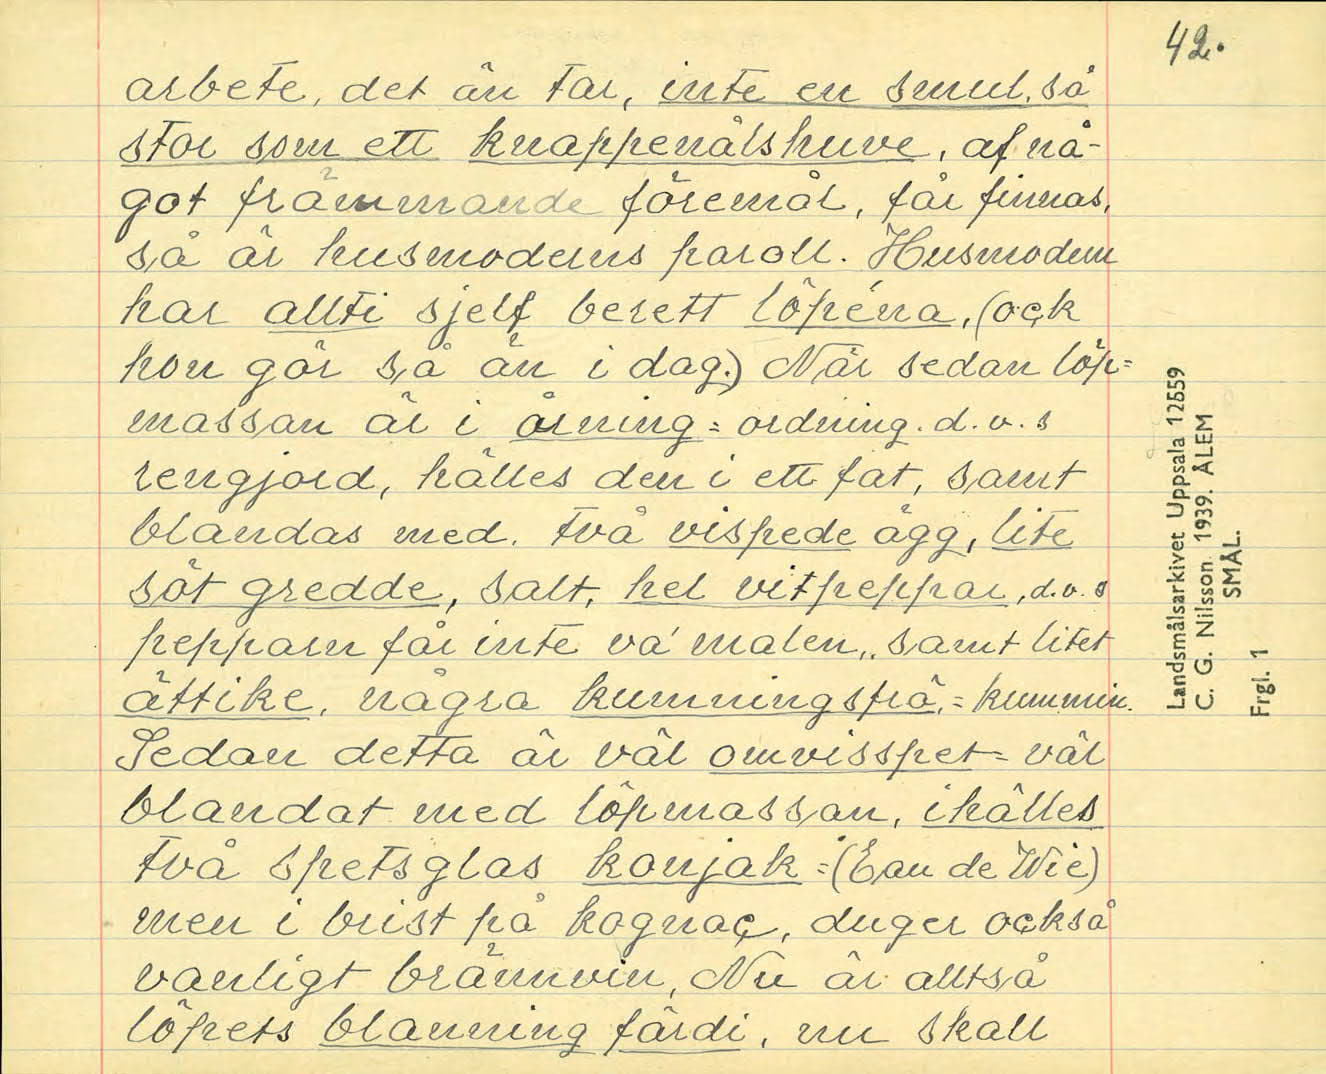 42.
arbete, det än tar, inte en smul, så
stor som ett knappenålshuve, af nå-
got främmande föremål, får finnas,
så är husmoderns paroll. Husmodern
har allti sjelf berett löpéna, (ock
hon gör så än i dag.) När sedan löp=
massan är i årning = ordning. d. v. s
rengjord, hälles den i ett fat, samt
blandas med. två vispede ägg, lite
söt gredde, salt, hel vitpeppar, d. v. s
pepparn får inte va' malen,, samt litet
ättike, några kumningsfrö, = kummin.
Sedan detta är väl omvisspet = väl
blandat med löpmassan, ihälles
två spetsglas konjak = (Eau de Wie)
men i brist på kognaç, duger också
vanligt brännvin, Nu är alltså
löpets blanning färdi, nu skall
Landsmålsarkivet Uppsala 12559
C. G. Nilsson. 1939. ÅLEM
SMÅL.
Frgl. 1